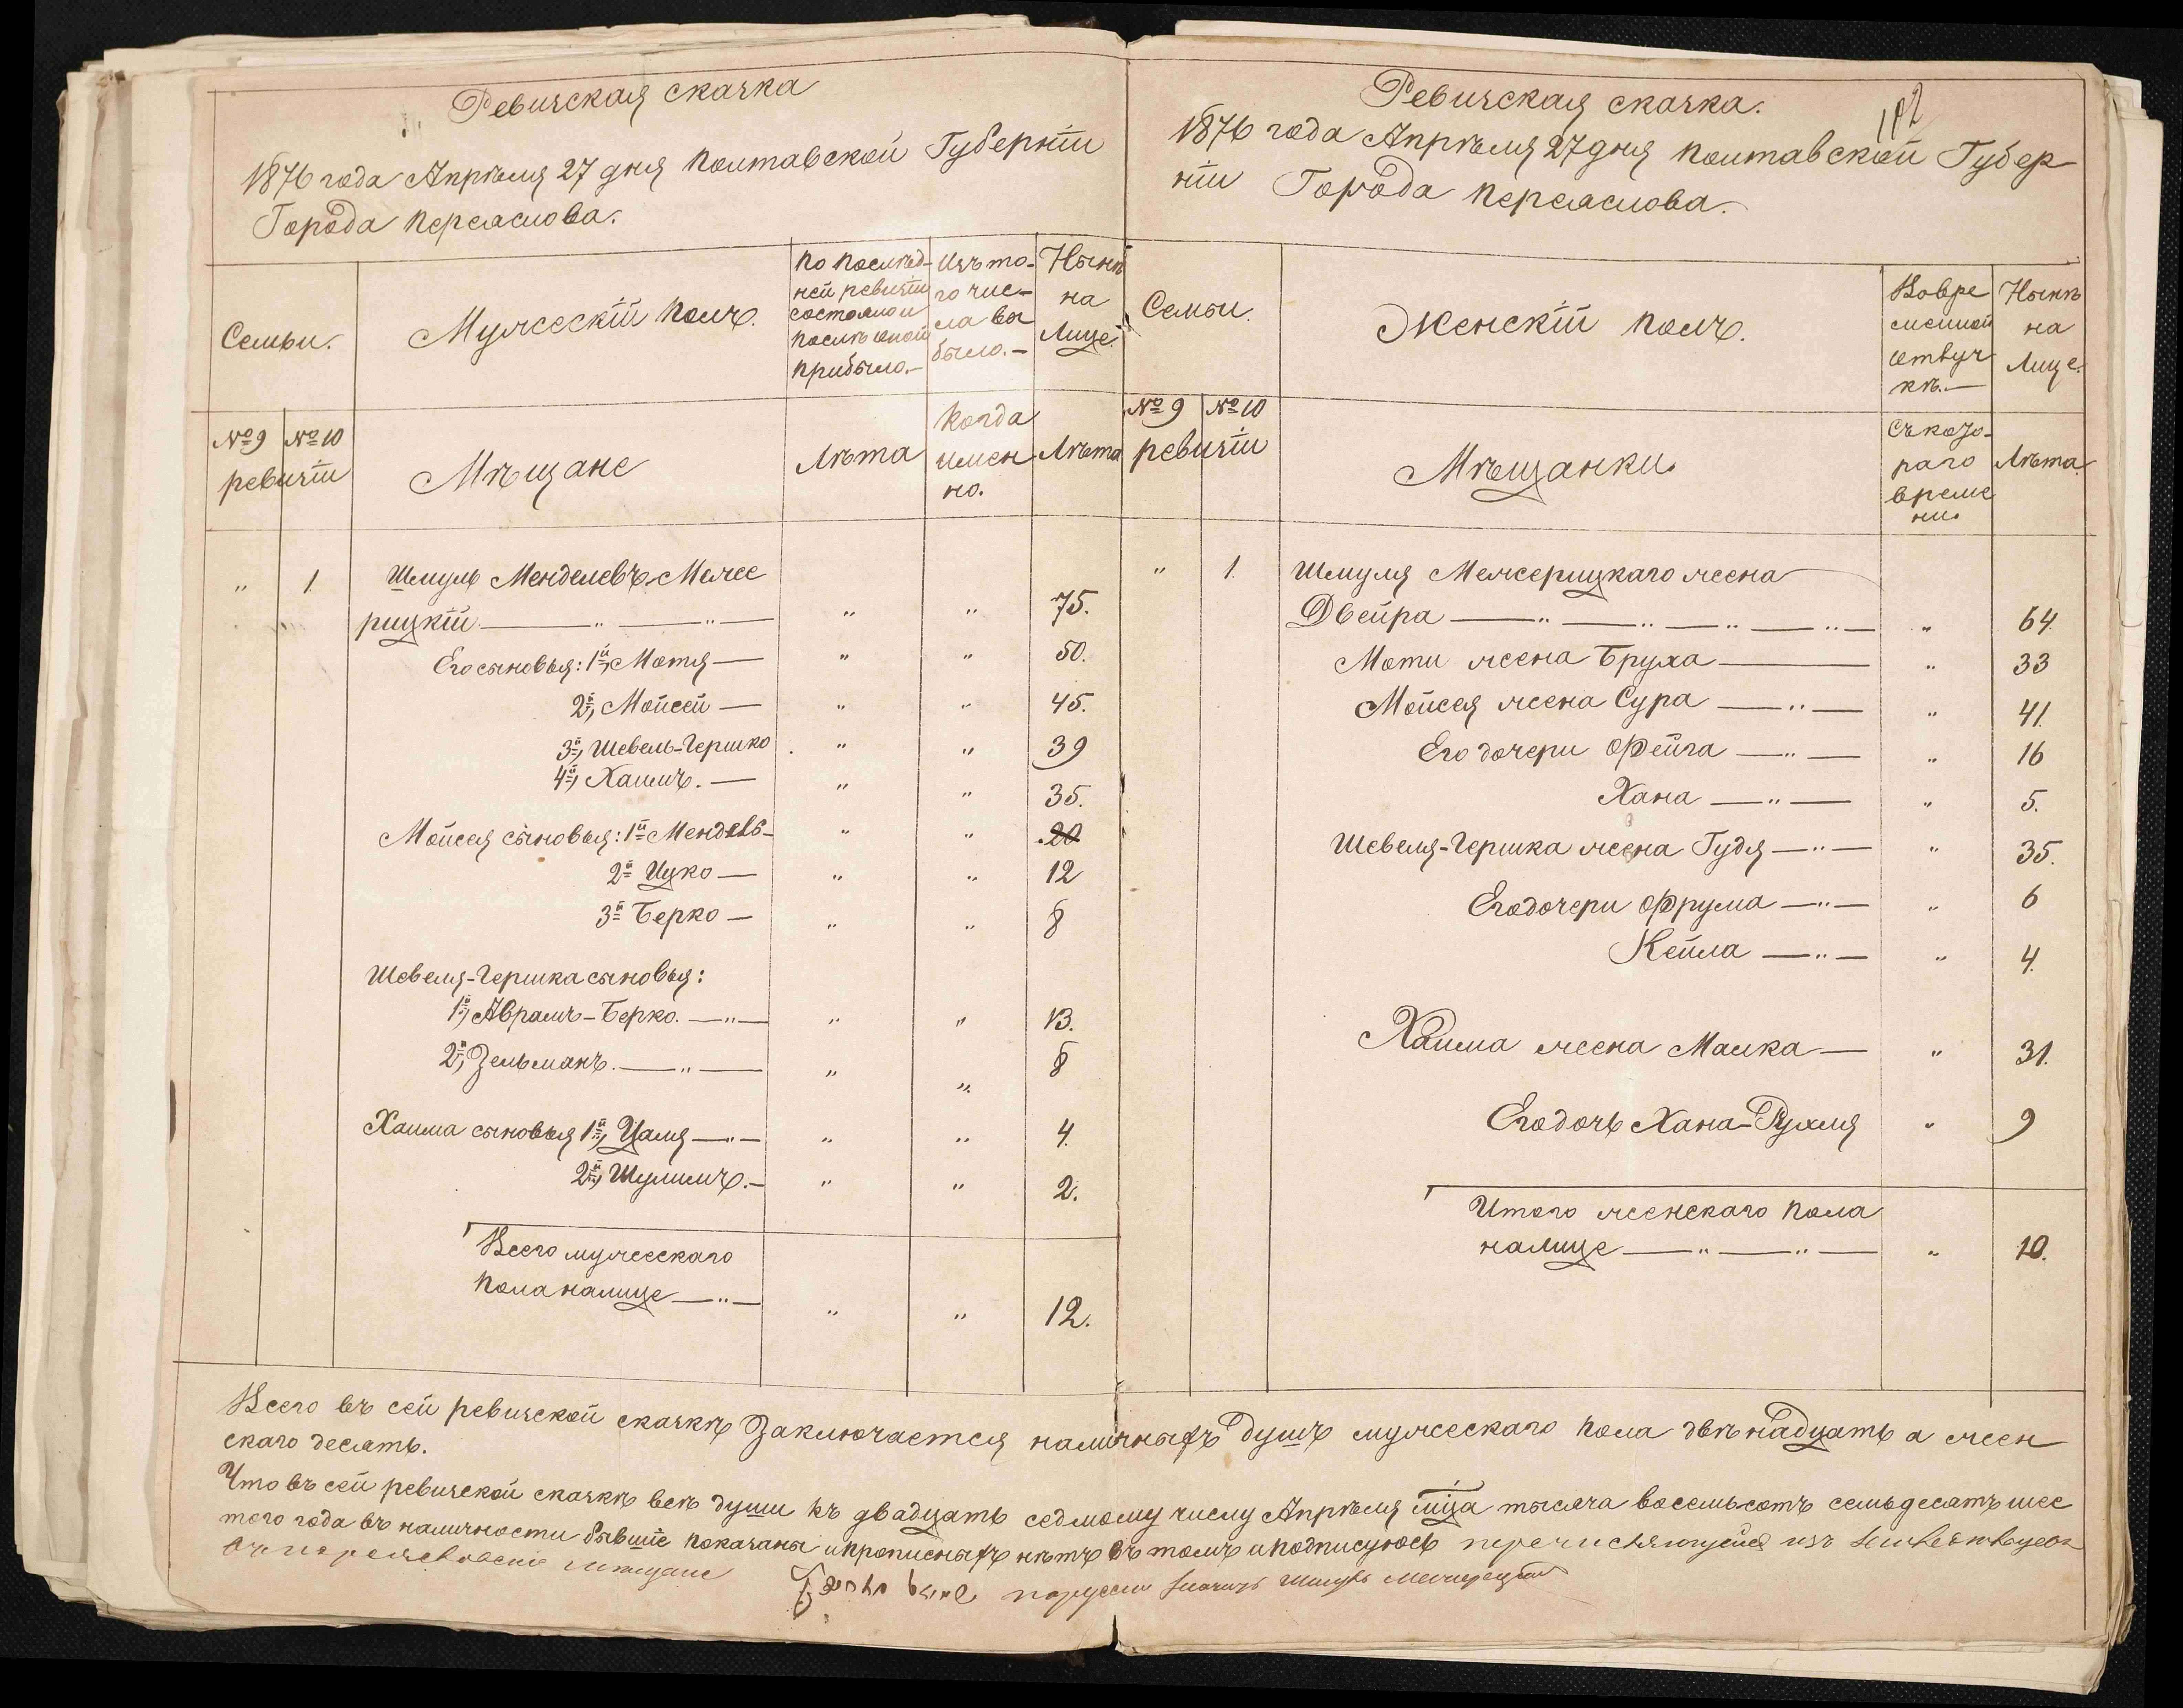 Ревизская сказка
1876 года Апрѣля 27 дня Полтавской Губерніи
Города Переяслова.
Семьи.
Мужескій полъ.
По послѣд-
ней ревизіи
состояло и
послѣ оной
прибыло.-
Изъ то-
го чис-
ла вы
было.-
Нынѣ
на
Лице.
№ 9 № 10
ревизіи
Мѣщане
Лѣта
Когда
имен
но.
Лѣта
" 1 Шмуль Менделевъ Меже
рицкій " " 75.
Его сыновья: 1й, Мотя — " " 50.
2й, Мойсей — " " 45.
3й, Шевель-Гершко " " 39
4й, Хаимъ. — " " 35.
Мойсея сыновья: 1й Мендель- " " 20
2й Ицко — " " 12
3й Берко — " " 8
Шевеля-Гершка сыновья:
1й, Аврамъ-Берко. —"— " " 13.
2й, Зельманъ. —"— " " 8
Хаима сыновья 1й, Цаля —"— " " 4.
2й, Шулимъ. — " " 2.
Всего мужескаго
пола налице —"— " " 12.
Ревизская сказка.
102
1876 года Апрѣля 27 дня Полтавской Губер
ніи Города Переяслова.
Семьи.
Женскій полъ.
Во вре
менной
отлуч
кѣ.—
Нынѣ
на
Лице.
№ 9 № 10
ревизіи
Мѣщанки.
Съ кото-
раго
време
ни.
Лѣта.
" 1. Шмуля Межерицкаго жена
Двейра " 64.
Моти жена Бруха — " 33
Мойсея жена Сура —"— " 41.
Его дочери Фейга —"— " 16
Хана —"— " 5.
Шевеля-Гершка жена Гудя —"— " 35.
Его дочери Фрума —"— " 6
Кейла —"— " 4.
Хаима жена Малка — " 31.
Его дочь Хана-Рухля " 9
Итого женскаго пола
налице —"—"— " 10.
Всего въ сей ревизской сказкѣ заключается наличныхъ душъ мужескаго пола двѣнадцать а жен
скаго десять.
Что въ сей ревизской сказкѣ всѣ души къ двадцать седмому числу Апрѣля мца тысяча восемьсотъ семьдесятъ шес
того года въ наличности бывшіе показаны и прописныхъ нѣтъ въ томъ и подписуюсь перечисляющейся изъ
въ переяславскіе мещане Шмуль Межерецкій